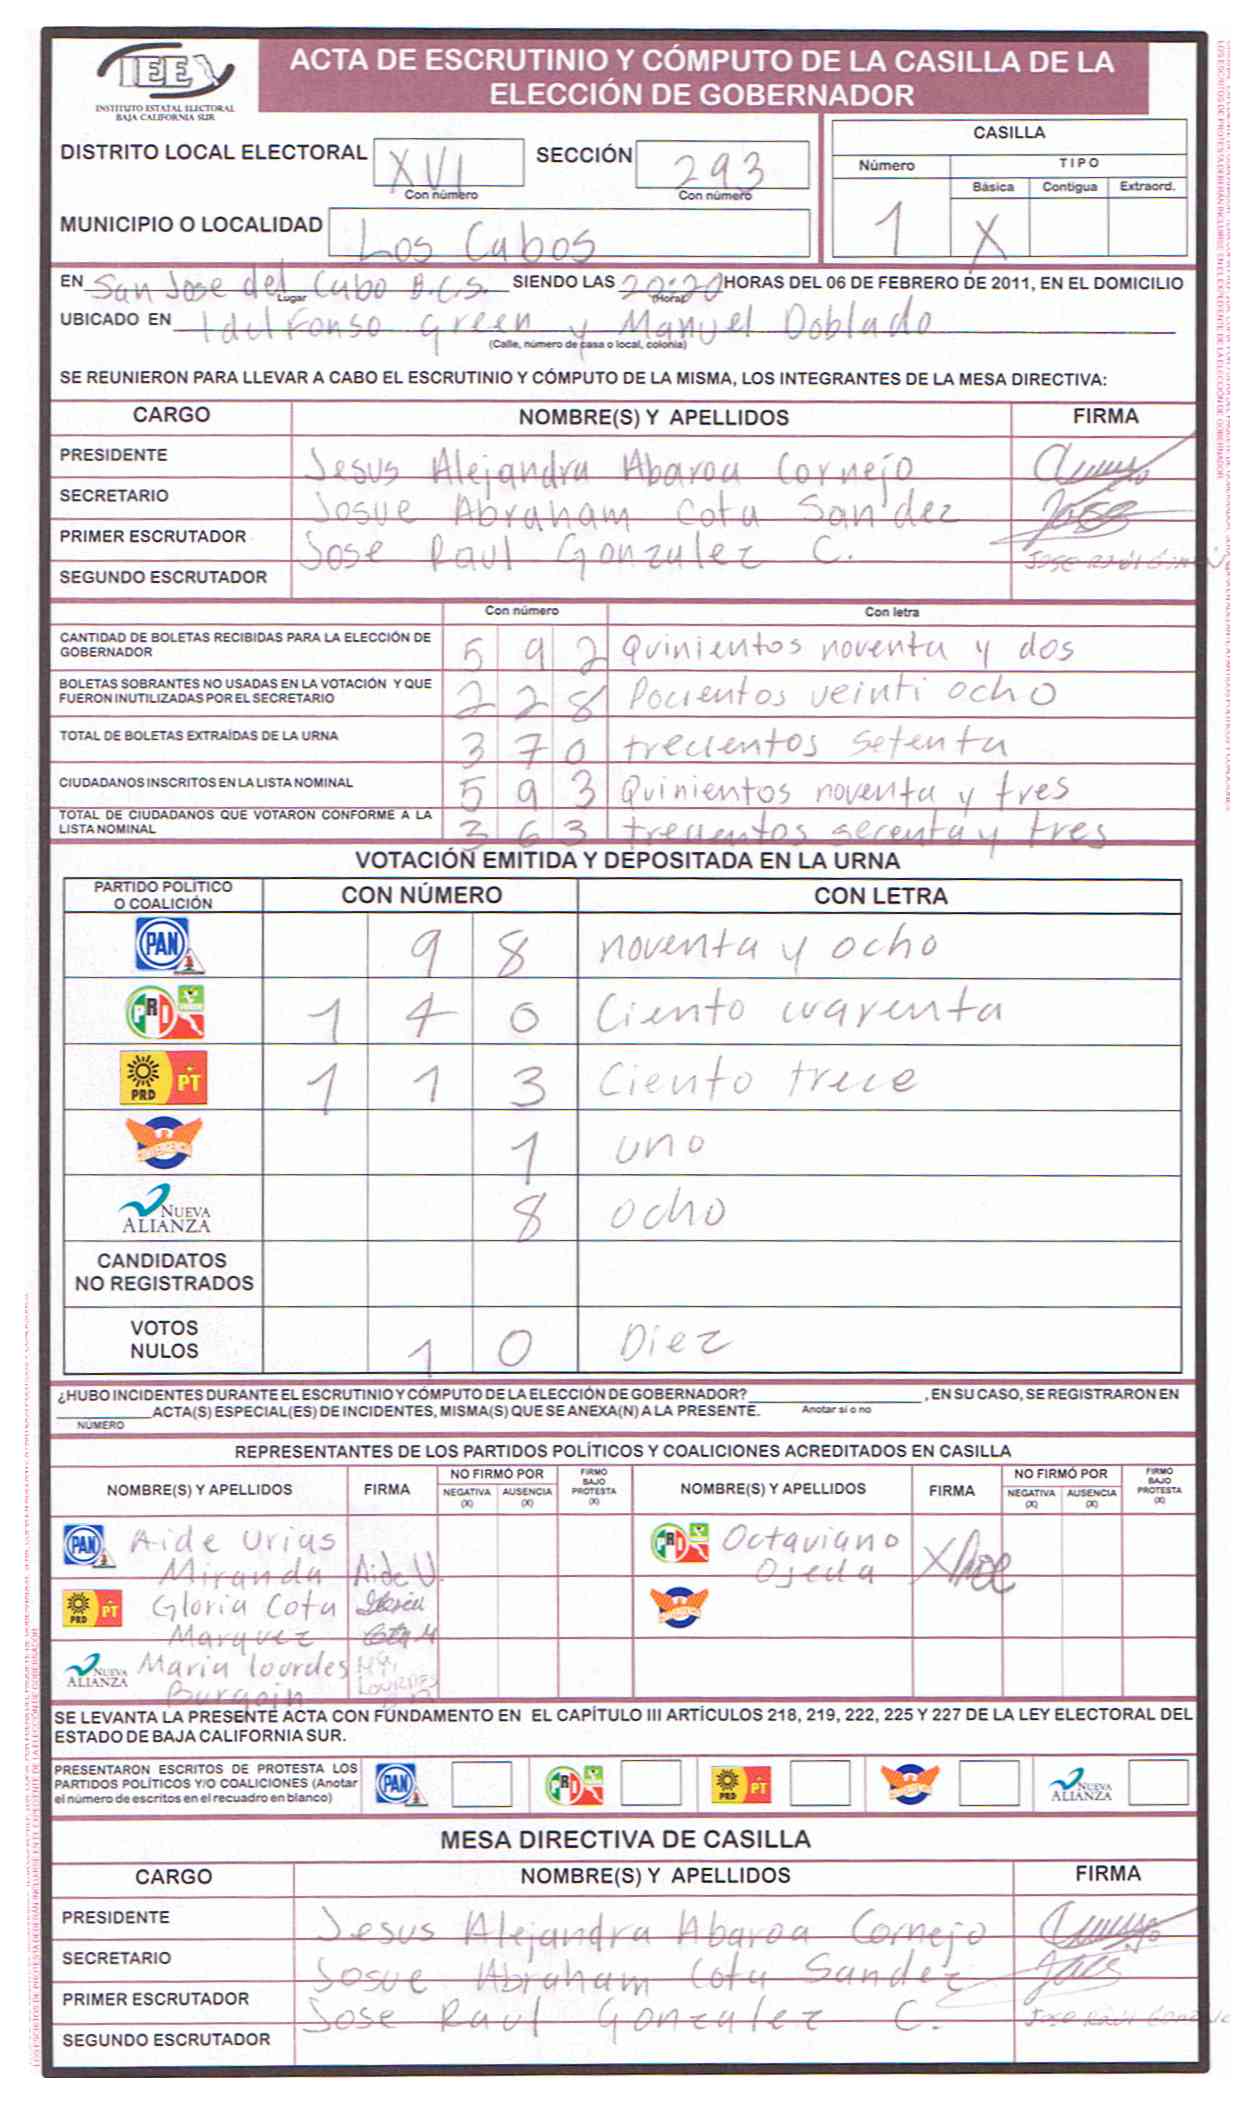 IEE
INSTITUTO ESTATAL ELECTORAL
BAJA CALIFORNIA SUR
ACTA DE ESCRUTINIO Y CÓMPUTO DE LA CASILLA DE LA
ELECCIÓN DE GOBERNADOR
DISTRITO LOCAL ELECTORAL XVI SECCIÓN 293
Con número Con número
MUNICIPIO O LOCALIDAD Los Cabos
CASILLA
Número TIPO
Básica Contigua Extraord.
1 X
EN San Jose del Cabo B.C.S. SIENDO LAS 20:20 HORAS DEL 06 DE FEBRERO DE 2011, EN EL DOMICILIO
Lugar (Hora)
UBICADO EN Idelfonso Green y Manuel Doblado
(Calle, número de casa o local, colonia)
SE REUNIERON PARA LLEVAR A CABO EL ESCRUTINIO Y CÓMPUTO DE LA MISMA, LOS INTEGRANTES DE LA MESA DIRECTIVA:
CARGO NOMBRE(S) Y APELLIDOS FIRMA
PRESIDENTE Jesus Alejandra Abaroa Cornejo
SECRETARIO Josue Abraham Cota Sandez
PRIMER ESCRUTADOR Jose Raul Gonzalez C.
SEGUNDO ESCRUTADOR
Con número Con letra
CANTIDAD DE BOLETAS RECIBIDAS PARA LA ELECCIÓN DE
GOBERNADOR 5 9 2 Quinientos noventa y dos
BOLETAS SOBRANTES NO USADAS EN LA VOTACIÓN Y QUE
FUERON INUTILIZADAS POR EL SECRETARIO 2 2 8 Docientos veinti ocho
TOTAL DE BOLETAS EXTRAÍDAS DE LA URNA 3 7 0 trecientos setenta
CIUDADANOS INSCRITOS EN LA LISTA NOMINAL 5 9 3 Quinientos noventa y tres
TOTAL DE CIUDADANOS QUE VOTARON CONFORME A LA
LISTA NOMINAL 3 6 3 trecientos secenta y tres
VOTACIÓN EMITIDA Y DEPOSITADA EN LA URNA
PARTIDO POLÍTICO
O COALICIÓN CON NÚMERO CON LETRA
PAN 9 8 noventa y ocho
PRD 1 4 0 Ciento cuarenta
PRD PT 1 1 3 Ciento trece
1 uno
NUEVA ALIANZA 8 ocho
CANDIDATOS
NO REGISTRADOS
VOTOS
NULOS 1 0 Diez
¿HUBO INCIDENTES DURANTE EL ESCRUTINIO Y CÓMPUTO DE LA ELECCIÓN DE GOBERNADOR? , EN SU CASO, SE REGISTRARON EN
ACTA(S) ESPECIAL(ES) DE INCIDENTES, MISMA(S) QUE SE ANEXA(N) A LA PRESENTE. Anotar si o no
NÚMERO
REPRESENTANTES DE LOS PARTIDOS POLÍTICOS Y COALICIONES ACREDITADOS EN CASILLA
NOMBRE(S) Y APELLIDOS FIRMA NO FIRMÓ POR NEGATIVA (X) AUSENCIA (X) FIRMÓ BAJO PROTESTA (X) NOMBRE(S) Y APELLIDOS FIRMA NO FIRMÓ POR NEGATIVA (X) AUSENCIA (X) FIRMÓ BAJO PROTESTA (X)
PAN Aide Urias PRD Octaviano
Miranda Aide U. Ojeda
PRD PT Gloria Cota
Marquez
NUEVA ALIANZA Maria lourdes
Burgoin LOURDES
SE LEVANTA LA PRESENTE ACTA CON FUNDAMENTO EN EL CAPÍTULO III ARTÍCULOS 218, 219, 222, 225 Y 227 DE LA LEY ELECTORAL DEL
ESTADO DE BAJA CALIFORNIA SUR.
PRESENTARON ESCRITOS DE PROTESTA LOS
PARTIDOS POLÍTICOS Y/O COALICIONES (Anotar
el número de escritos en el recuadro en blanco) PAN PRD PRD PT NUEVA ALIANZA
MESA DIRECTIVA DE CASILLA
CARGO NOMBRE(S) Y APELLIDOS FIRMA
PRESIDENTE Jesus Alejandra Abaroa Cornejo
SECRETARIO Josue Abraham Cota Sandez
PRIMER ESCRUTADOR Jose Raul Gonzalez C.
SEGUNDO ESCRUTADOR